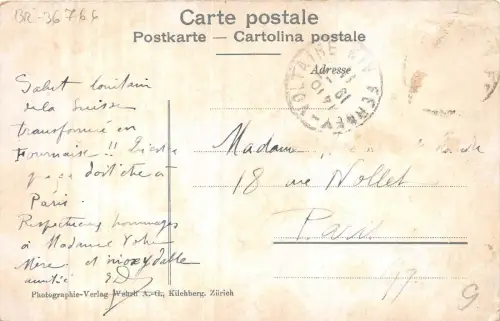 BR-36766
Carte postale
Postkarte — Cartolina postale
Adresse
FERNEY-VOLTAIRE
Salut lointain
de la Suisse
transformée en
fournaise !! Qu'est ce
que ça doit être à
Paris.
Respectueux hommages
à Madame Votre
Mère et inoxydable
amitié
Madame
18 rue Nollet
Paris
17.
Photographie-Verlag Wehrli A.-G., Kilchberg, Zürich
9